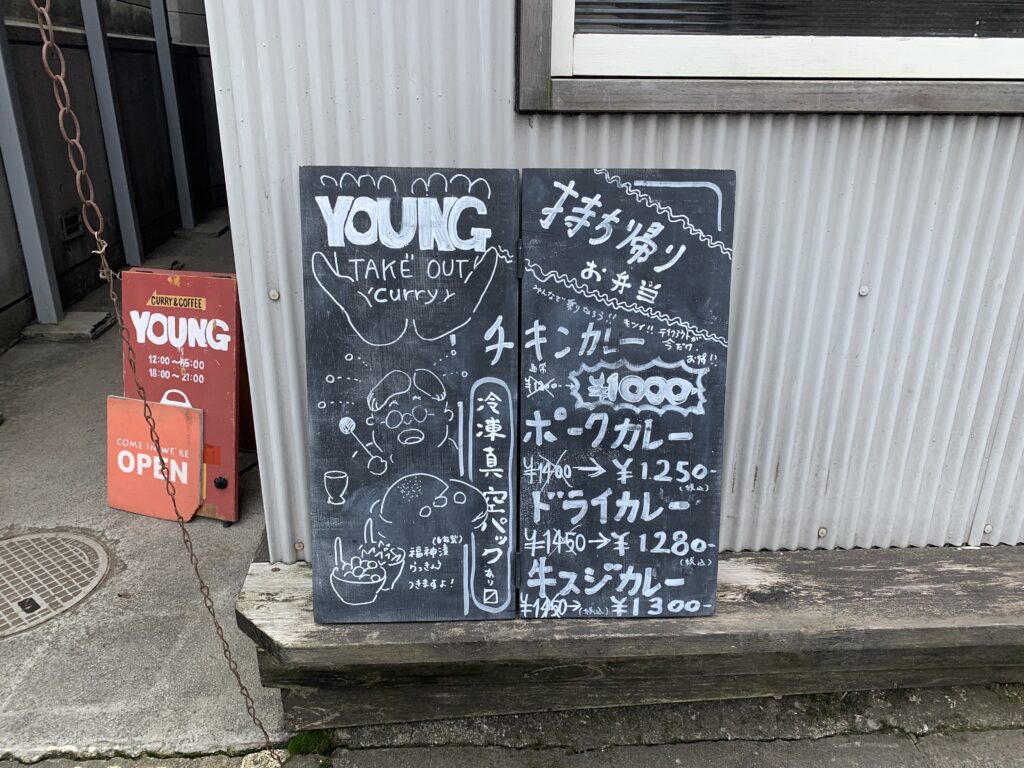 CURRY & COFFEE
YOUNG
12:00〜15:00
18:00〜21:00
COME IN WE'RE
OPEN
YOUNG
TAKE OUT
curry
冷凍真空パックあり〼
(自家製)
福神漬
らっきょ
つきますよ!
持ち帰り
お弁当
みんなで乗りきろう!!
テイクアウトが
今だけ
お得!!
チキンカレー
通常
¥1200
¥1000-
ポークカレー
¥1400→¥1250-
(税込)
ドライカレー
¥1450→¥1280-
(税込)
牛スジカレー
¥1450→(税込)¥1300-